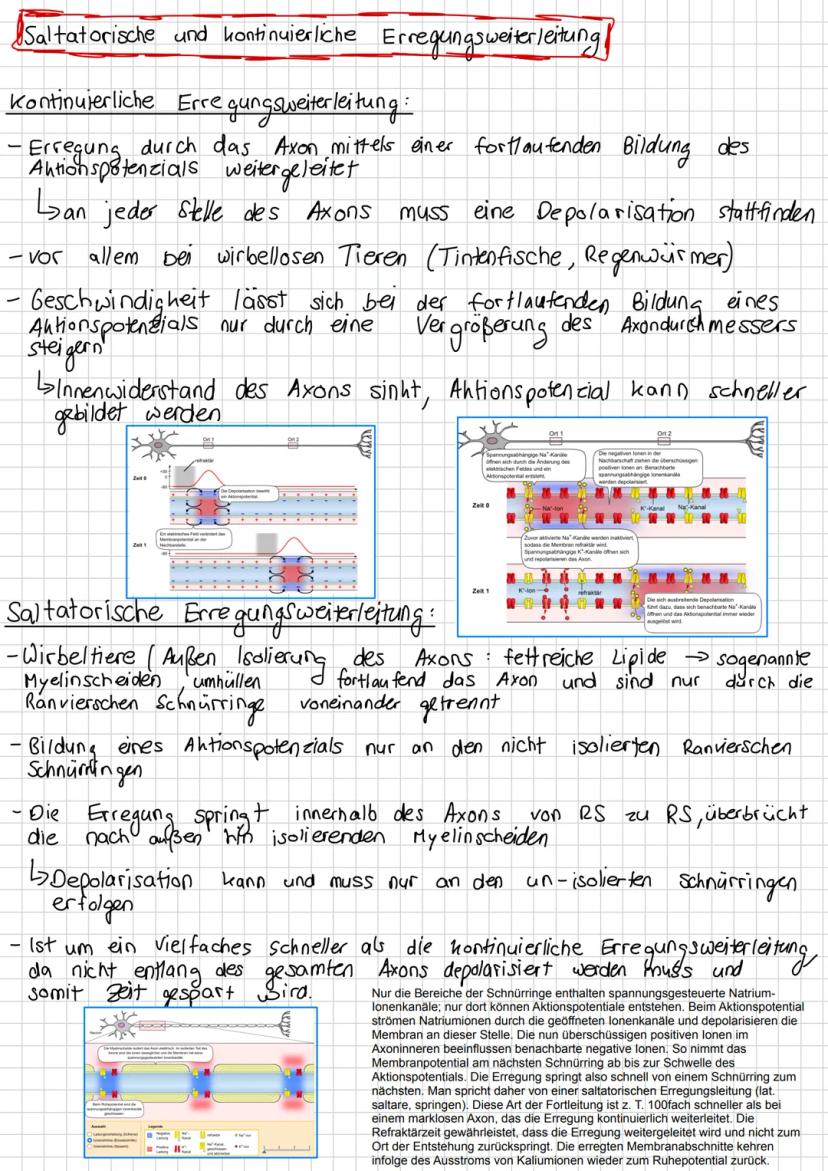 Saltatorische und kontinuierliche Erregungsweiterleitung
Kontinuierliche Erregungsweiterleitung:
- Erregung durch das Axon mittels einer fortlaufenden Bildung des
Aktionspotenzials weitergeleitet
↳ an jeder Stelle des Axons muss eine Depolarisation stattfinden
- vor allem bei wirbellosen Tieren (Tintenfische, Regenwürmer)
- Geschwindigkeit lässt sich bei der fortlaufenden Bildung eines
Aktionspotenzials nur durch eine Vergrößerung des Axondurchmessers
steigern
↳ Innenwiderstand des Axons sinkt, Aktionspotenzial kann schneller
gebildet werden
Ort 1 Ort 2
refraktär
Zeit 0
Die Depolarisation bewirkt
ein Aktionspotenzial.
Ein elektrisches Feld verändert das
Membranpotential an der
Nachbarstelle.
Zeit 1
Ort 1 Ort 2
Spannungsabhängige Na⁺-Kanäle
öffnen sich durch die Änderung des
elektrischen Feldes und ein
Aktionspotential entsteht.
Die negativen Ionen in der
Nachbarschaft ziehen die überschüssigen
positiven Ionen an. Benachbarte
spannungsabhängige Ionenkanäle
werden depolarisiert.
Zeit 0
Na⁺-Ion K⁺-Kanal Na⁺-Kanal
Zuvor aktivierte Na⁺-Kanäle werden inaktiviert,
sodass die Membran refraktär wird.
Spannungsabhängige K⁺-Kanäle öffnen sich
und repolarisieren das Axon.
Zeit 1
K⁺-Ion refraktär
Die sich ausbreitende Depolarisation
führt dazu, dass sich benachbarte Na⁺-Kanäle
öffnen und das Aktionspotential immer wieder
ausgelöst wird.
Saltatorische Erregungsweiterleitung:
- Wirbeltiere / Außen Isolierung des Axons: fettreiche Lipide → sogenannte
Myelinscheiden, umhüllen fortlaufend das Axon und sind nur durch die
Ranvierschen Schnürringe voneinander getrennt
- Bildung eines Aktionspotenzials nur an den nicht isolierten Ranvierschen
Schnürringen
- Die Erregung springt innerhalb des Axons von RS zu RS, überbrückt
die nach außen hin isolierenden Myelinscheiden
↳ Depolarisation kann und muss nur an den un-isolierten Schnürringen
erfolgen
- Ist um ein vielfaches schneller als die kontinuierliche Erregungsweiterleitung,
da nicht entlang des gesamten Axons depolarisiert werden muss und
somit Zeit gespart wird.
Nur die Bereiche der Schnürringe enthalten spannungsgesteuerte Natrium-
Ionenkanäle; nur dort können Aktionspotentiale entstehen. Beim Aktionspotential
strömen Natriumionen durch die geöffneten Ionenkanäle und depolarisieren die
Membran an dieser Stelle. Die nun überschüssigen positiven Ionen im
Axoninneren beeinflussen benachbarte negative Ionen. So nimmt das
Membranpotential am nächsten Schnürring ab bis zur Schwelle des
Aktionspotentials. Die Erregung springt also schnell von einem Schnürring zum
nächsten. Man spricht daher von einer saltatorischen Erregungsleitung (lat.
saltare, springen). Diese Art der Fortleitung ist z. T. 100fach schneller als bei
einem marklosen Axon, das die Erregung kontinuierlich weiterleitet. Die
Refraktärzeit gewährleistet, dass die Erregung weitergeleitet wird und nicht zum
Ort der Entstehung zurückspringt. Die erregten Membranabschnitte kehren
infolge des Ausstroms von Kaliumionen wieder zum Ruhepotential zurück.